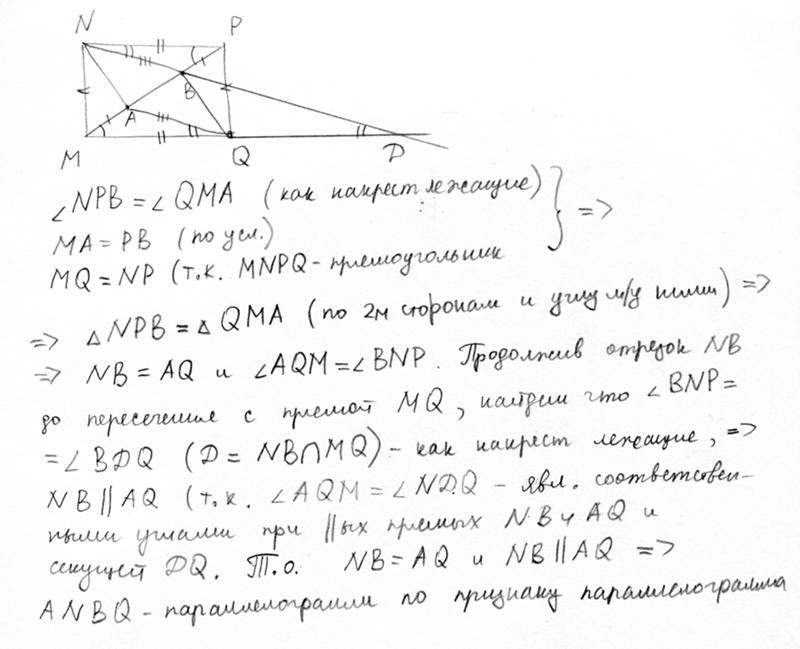 N P
B
A
M Q D
∠NPB = ∠QMA (как накрест лежащие)
MA = PB (по усл.) } =>
MQ = NP (т.к. MNPQ - прямоугольник
=> △NPB = △QMA (по 2м сторонам и углу м/у ними) =>
=> NB = AQ и ∠AQM = ∠BNP. Продолжив отрезок NB
до пересечения с прямой MQ, найдём что ∠BNP =
= ∠BDQ (D = NB∩MQ) - как накрест лежащие, =>
NB || AQ (т.к. ∠AQM = ∠NDQ - явл. соответствен-
ными углами при ||ых прямых NB и AQ и
секущей DQ. Т.о. NB = AQ и NB || AQ =>
ANBQ - параллелограмм по признаку параллелограмма